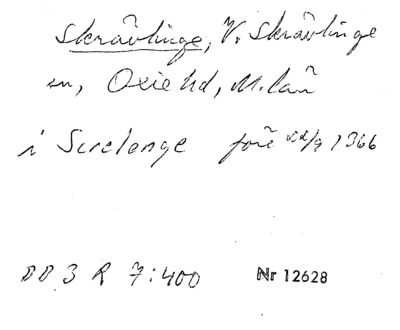 Skrävlinge, V. Skrävlinge
sn, Oxie hd, M. län
i Screlenge före 22/9 1366
DD 3 R 7:400 Nr 12628